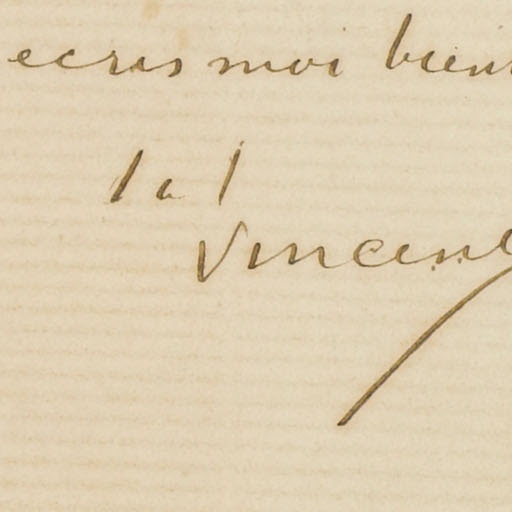 ecris moi bien
t. à t.
Vincent